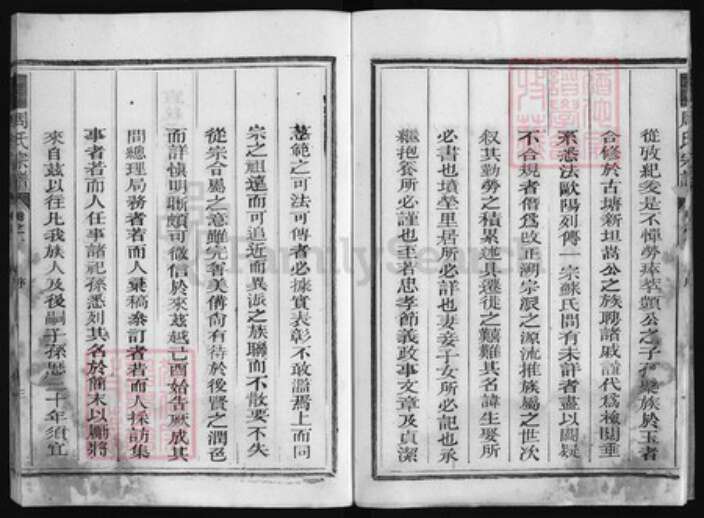 周氏宗譜
從攷紀爰是不憚勞瘁紫頭公之子孫聚族於玉者
合修於古塘新坦嵩公之族聘諸戚謹代爲檢閱垂
系悉法歐陽列傳一宗蘇氏間有未詳者盡以闕疑
不合規者僭爲改正溯宗派之源流推族屬之世次
叙其勤勞之積累述其遷徙之艱難其名諱生娶所
必書也墳塋里居所必詳也妻妾子女所必記也承
繼抱養所必謹也至若忠孝節義政事文章及貞潔
懿範之可法可傳者必據實表彰不敢濫焉上而同
宗之祖遠而可追近而異派之族聯而不散要不失
從宗合屬之意難完善美備尙有待於後賢之潤色
而詳慎明晰頗可徵信於來茲越己酉始告厥成其
間總理局務者若而人秉稿叅訂者若而人採訪集
事者若而人任事諸祀孫悉列其名於簡末以勵將
來自茲以往凡我族人及後嗣子孫思二十年須宜
周氏宗譜
卷之
序
三
FamilySearch